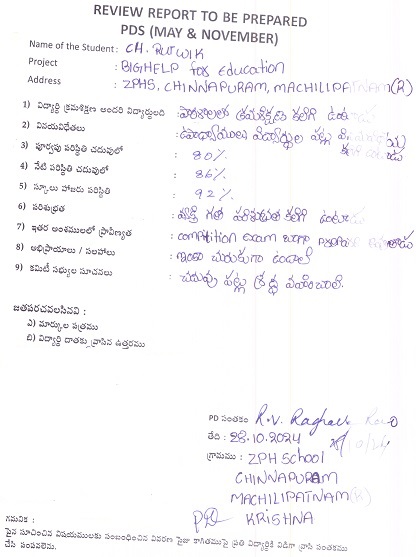 REVIEW REPORT TO BE PREPARED
PDS (MAY & NOVEMBER)
Name of the Student : CH. RUTWIK
Project : BIGHELP for Education
Address : ZPHS, CHINNAPURAM, MACHILIPATNAM(R)
1) విద్యార్థి క్రమశిక్షణ అందరి విద్యార్థులది : పాఠశాలలో క్రమశిక్షణ కలిగి ఉంటాడు
2) వినయవిధేతలు : ఉపాధ్యాయులు విద్యార్థుల పట్ల
కలిగి ఉంటాడు
3) పూర్వపు పరిస్థితి చదువులో : 80%
4) నేటి పరిస్థితి చదువులో : 86%
5) స్కూలు హాజరు పరిస్థితి : 92%
6) పరిశుభ్రత : వ్యక్తి గత పరిశుభ్రత కలిగి ఉంటాడు
7) ఇతర అంశములలో ప్రావిణ్యత : competition exam బాగా prepare అవుతాడు
8) అభిప్రాయాలు / సలహాలు : ఇంకా చురుకుగా ఉండాలి
9) కమిటీ సభ్యుల సూచనలు : చదువు పట్ల శ్రద్ధ వహించాలి.
జతపరచవలసినవి :
ఎ) మార్కుల పత్రము
బి) విద్యార్థి దాతకు వ్రాసిన ఉత్తరము
PD సంతకం : R.V. Raghava Rao
తేది : 28.10.2024
గ్రామము : ZPH School
CHINNAPURAM
MACHILIPATNAM(R)
KRISHNA
గమనిక :
పైన సూచించిన విషయములకు సంబంధించిన వివరణ పైజా కాగితముపై ప్రతి విద్యార్థికి విడిగా వ్రాసి సంతకము
చేసి పంపవలెను.